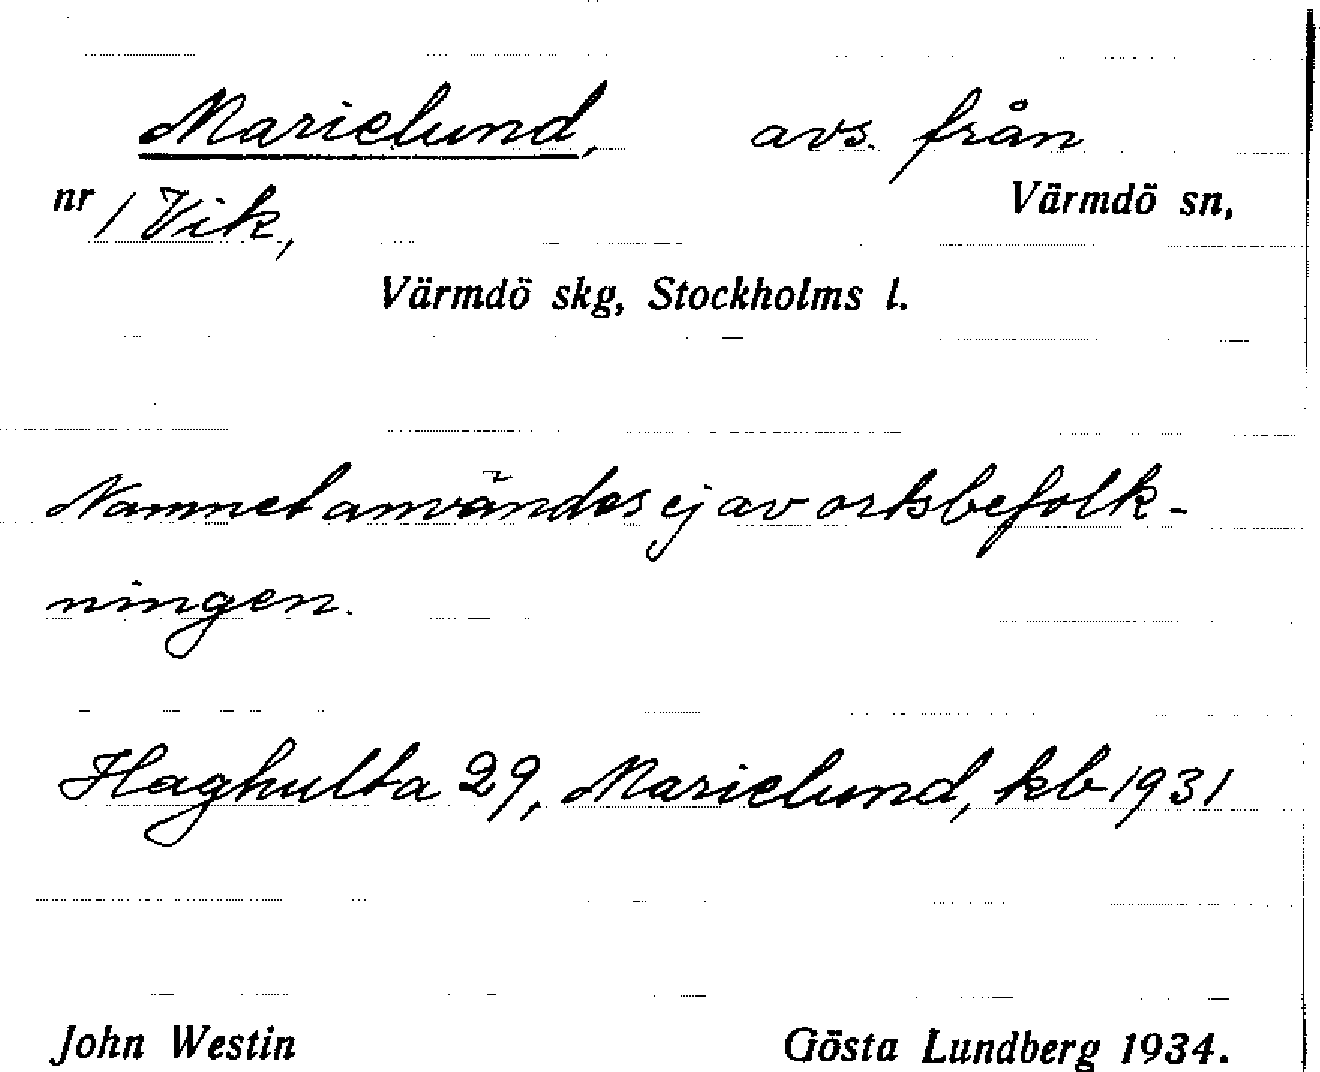 Marielund, avs. från
nr 1 Vik, Värmdö sn,
Värmdö skg, Stockholms l.
Namnet användes ej av ortsbefolk-
ningen.
Haghulta 29, Marielund, kb 1931
John Westin Gösta Lundberg 1934.